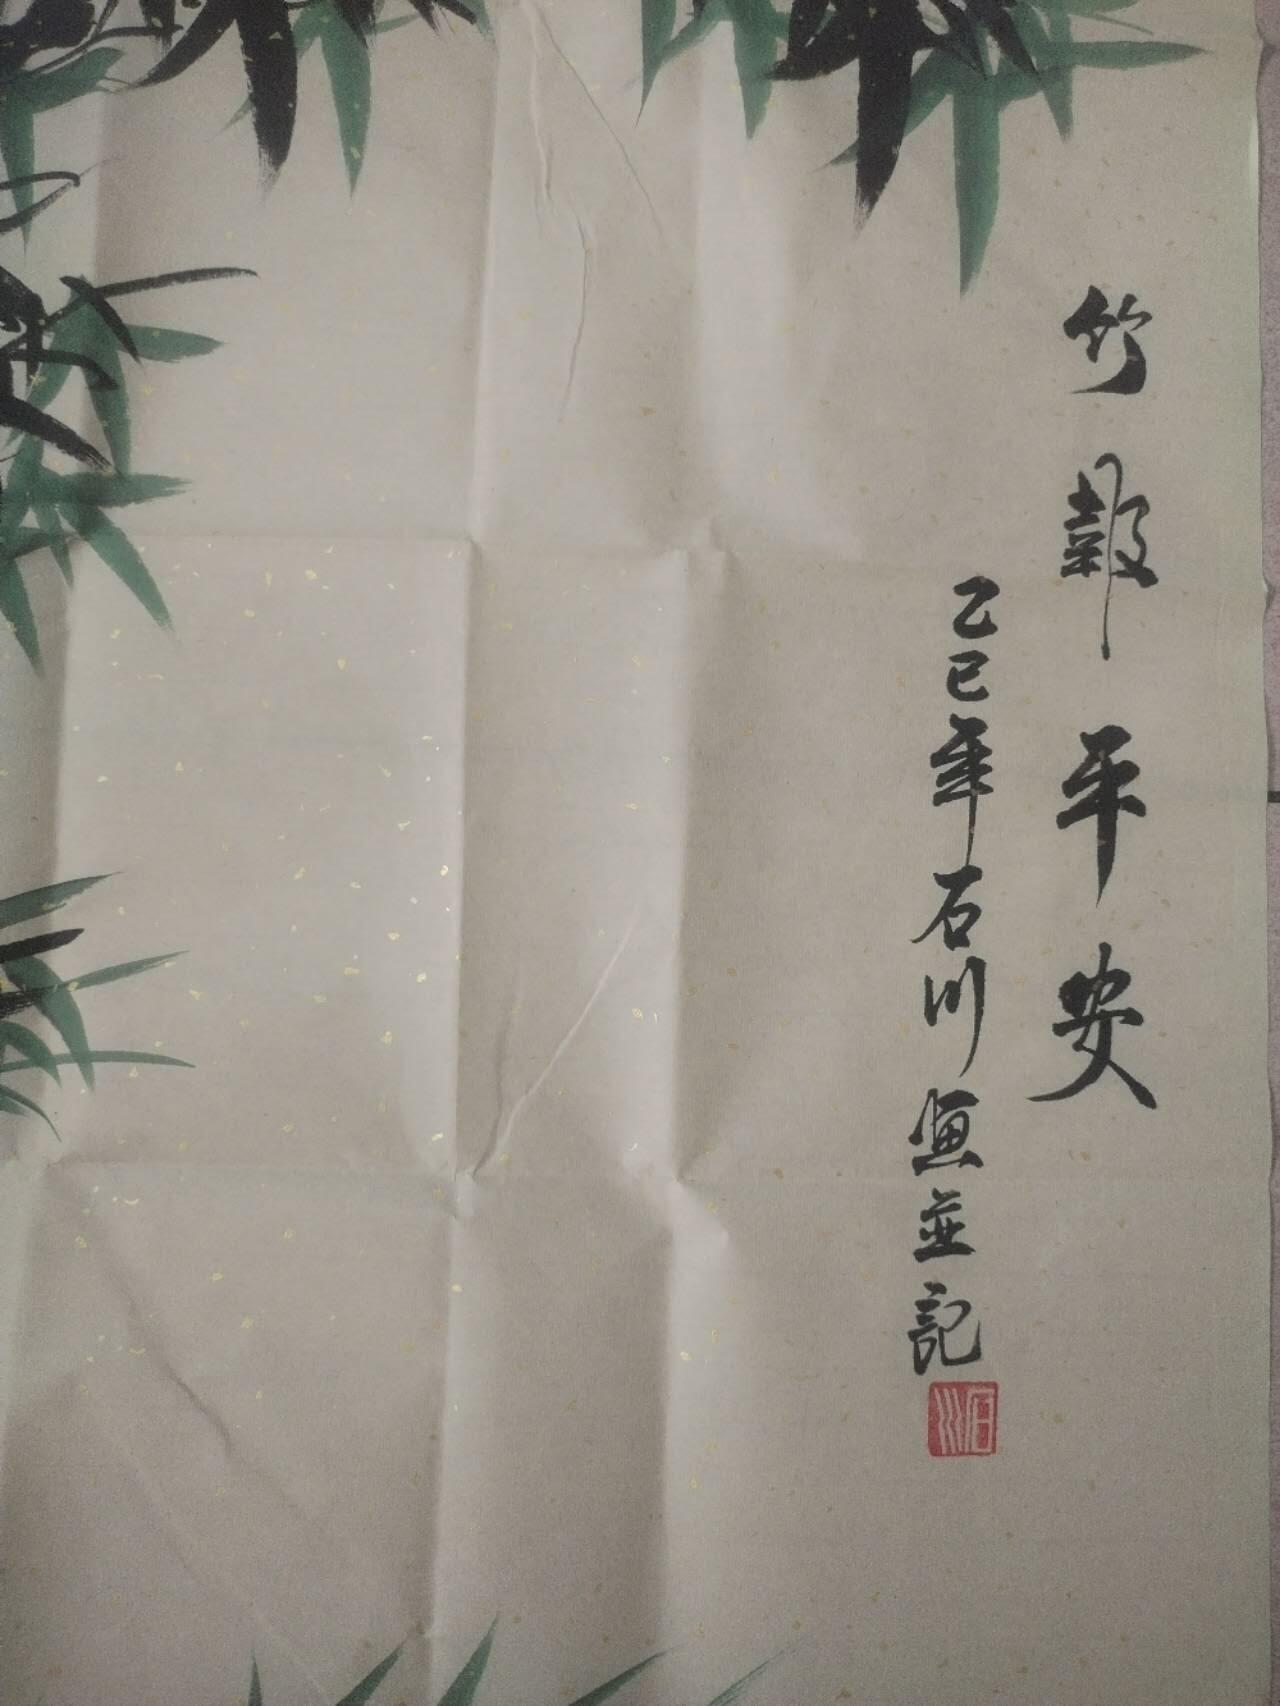 竹報平安
乙巳年石川画並記
石川